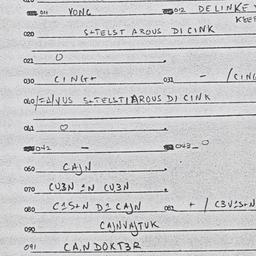 011 YONG 012 DELINKE
020 S+TELST AROUS DI CINK
021 O
030 CING++ 031 - / CING
040 /=A/VUS S+TELST/AROUS DI CINK
041 O
042 - 043 - O
060 CAJN
070 CU3N =N CU3N
080 C=S+N D= CAJN 081 + / C3V=S+N
090 CAJNVAJTUK
091 CA.NDOKT3R